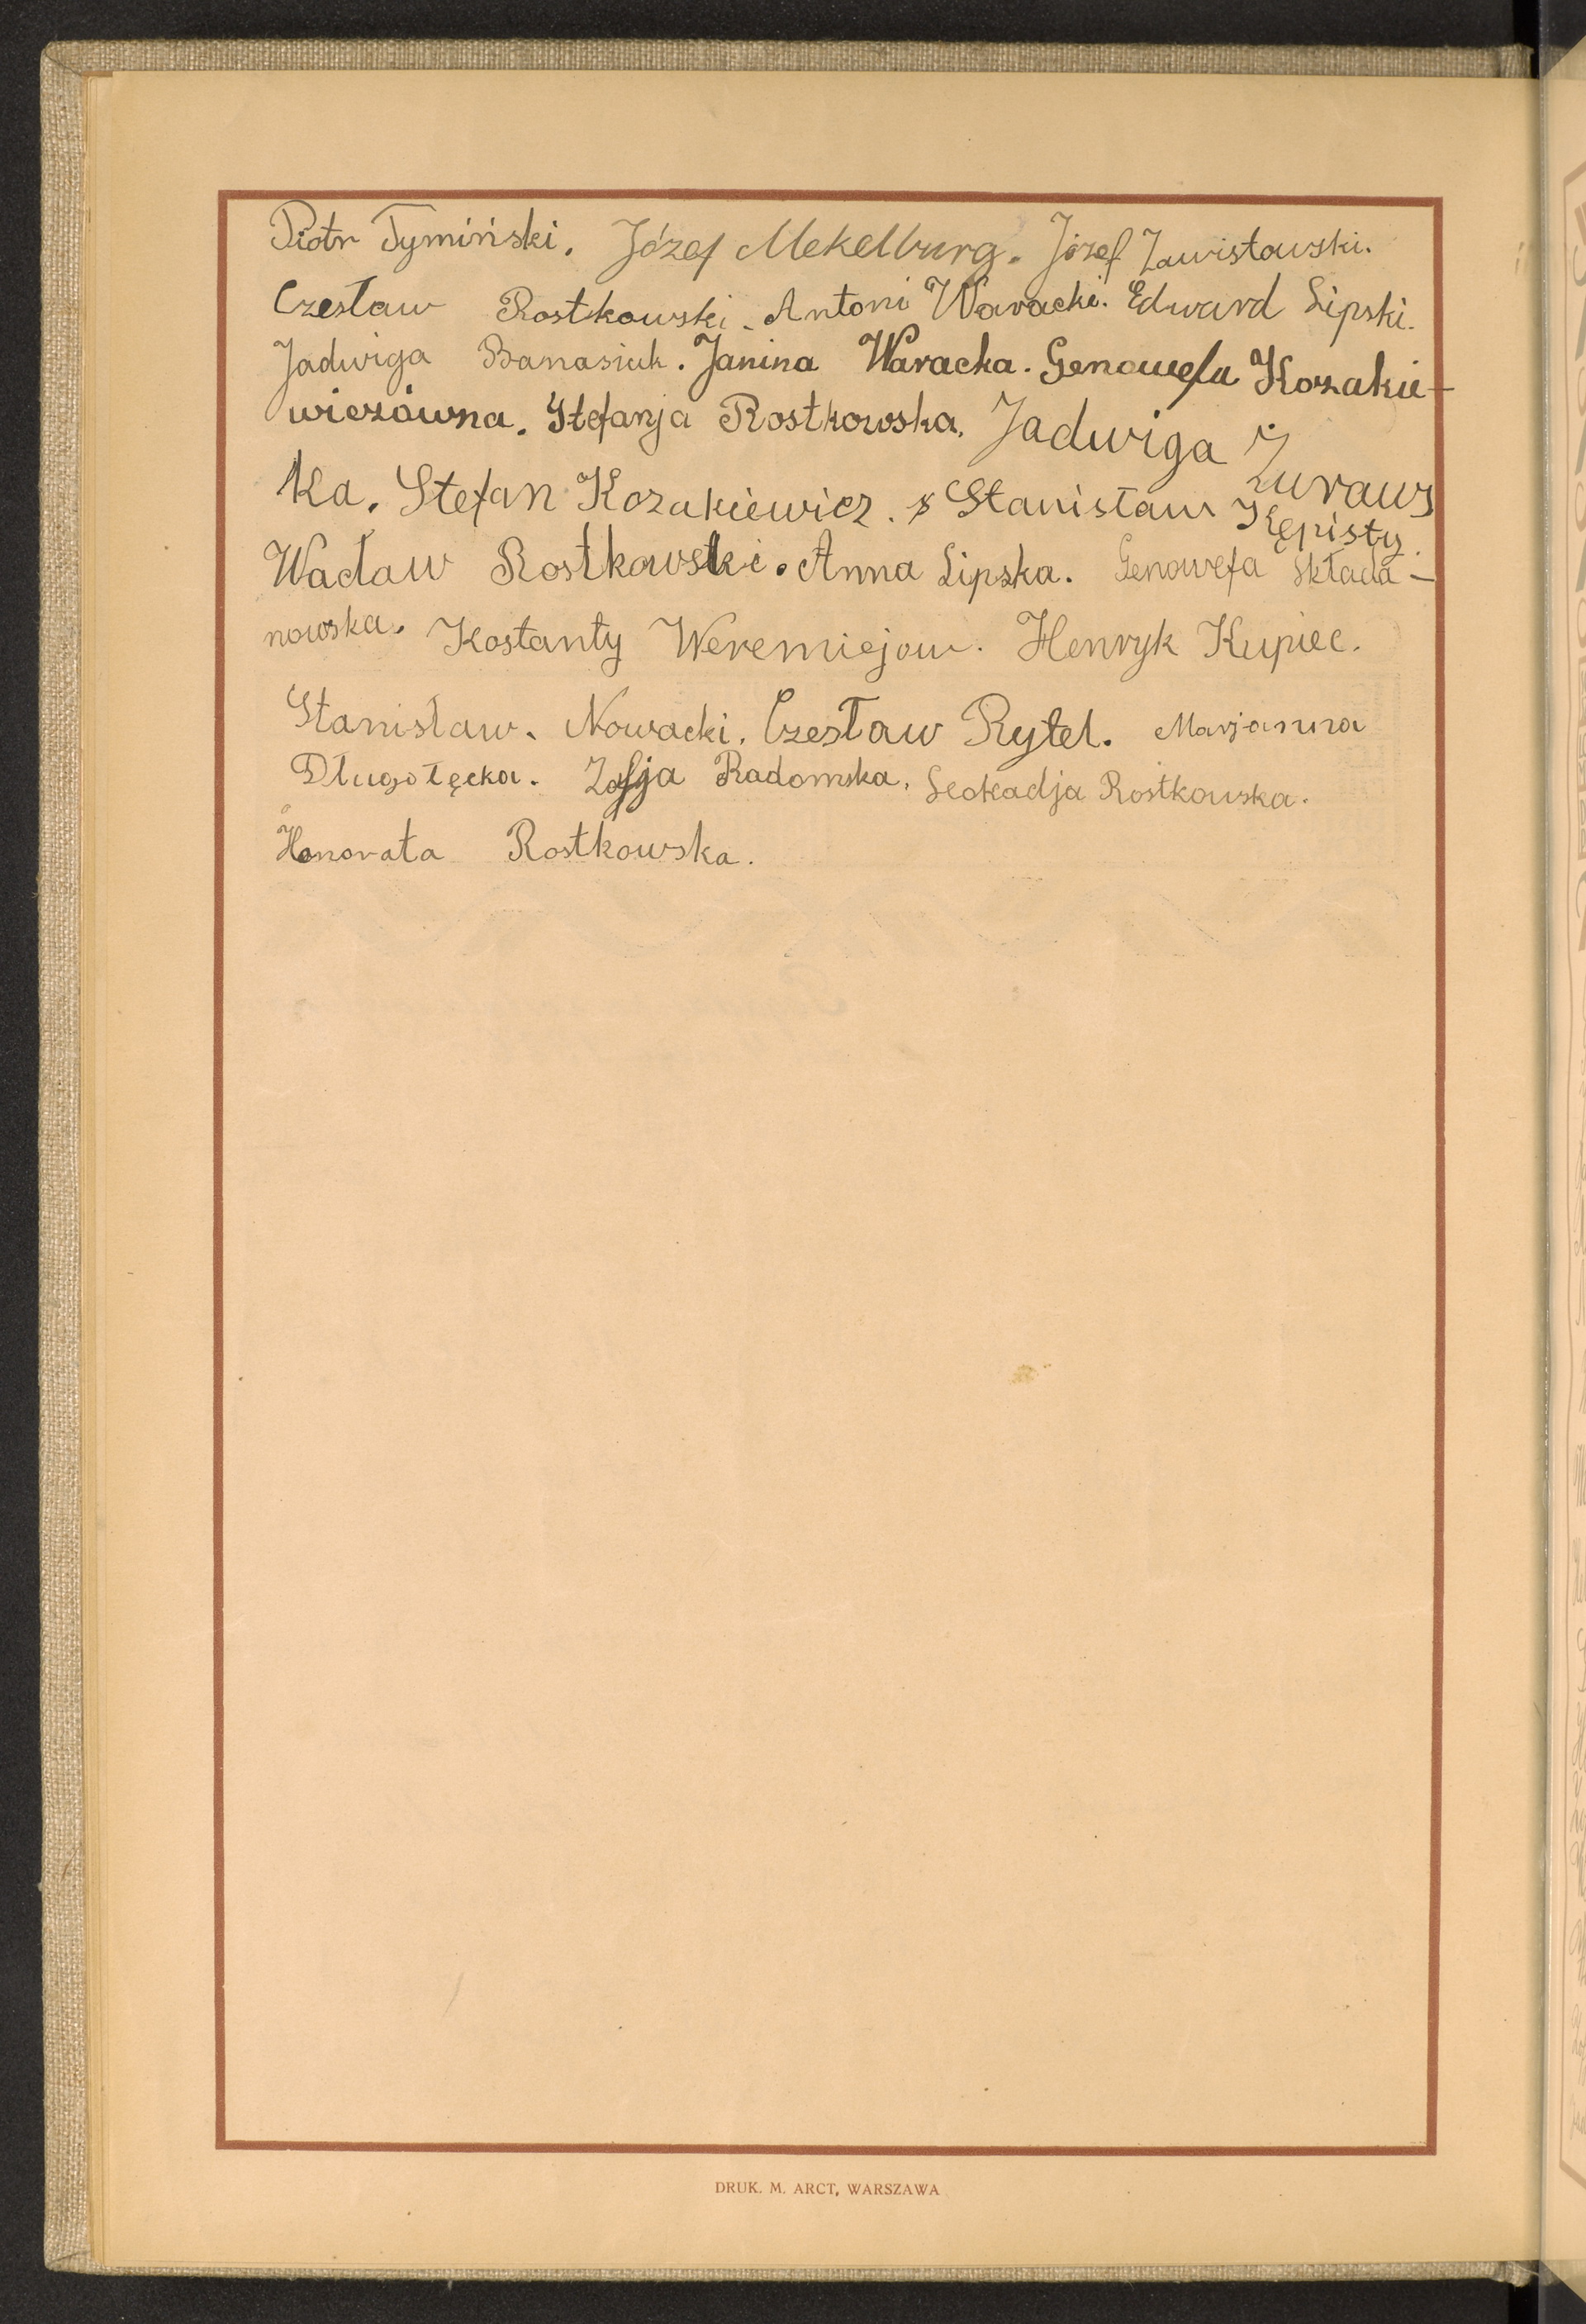 Piotr Tymiński. Józef Mekelburg. Józef Zawistowski.
Czesław Rostkowski. Antoni Waracki. Edward Lipski.
Jadwiga Banasiuk. Janina Waracka. Genowefa Kozakie-
wiczówna. Stefanja Rostkowska. Jadwiga Żuraws
ka. Stefan Kozakiewicz. Stanisław Kępisty.
Wacław Rostkowski. Anna Lipska. Genowefa Składa-
nowska. Kostanty Weremiejow. Henryk Kupiec.
Stanisław. Nowacki. Czesław Rytel. Marjanna
Długołęcka. Zofja Radomska. Leokadja Rostkowska.
Honorata Rostkowska.
DRUK. M. ARCT, WARSZAWA